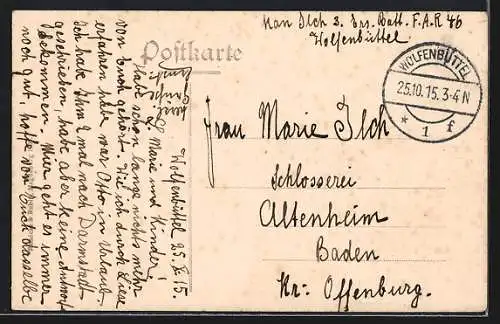 Kan Ilch 3. Ers. Batt. F.A.R 46
Wolfenbüttel
Postkarte
WOLFENBÜTTEL
25.10.15.3-4N
* 1 f
Frau Marie Ilch
Schlosserei
Altenheim
Baden
Kr. Offenburg.
Wolfenbüttel 25. X. 15.
L. Marie und Kinder!
Habe schon lange nichts mehr
von Euch gehört. Wie ich durch Liese
erfahren habe war Otto in Urlaub.
Ich habe Ihm 2 mal nach Darmstadt
geschrieben, habe aber keine Antwort
bekommen. Mir geht es immer
noch gut, hoffe von Euch dasselbe